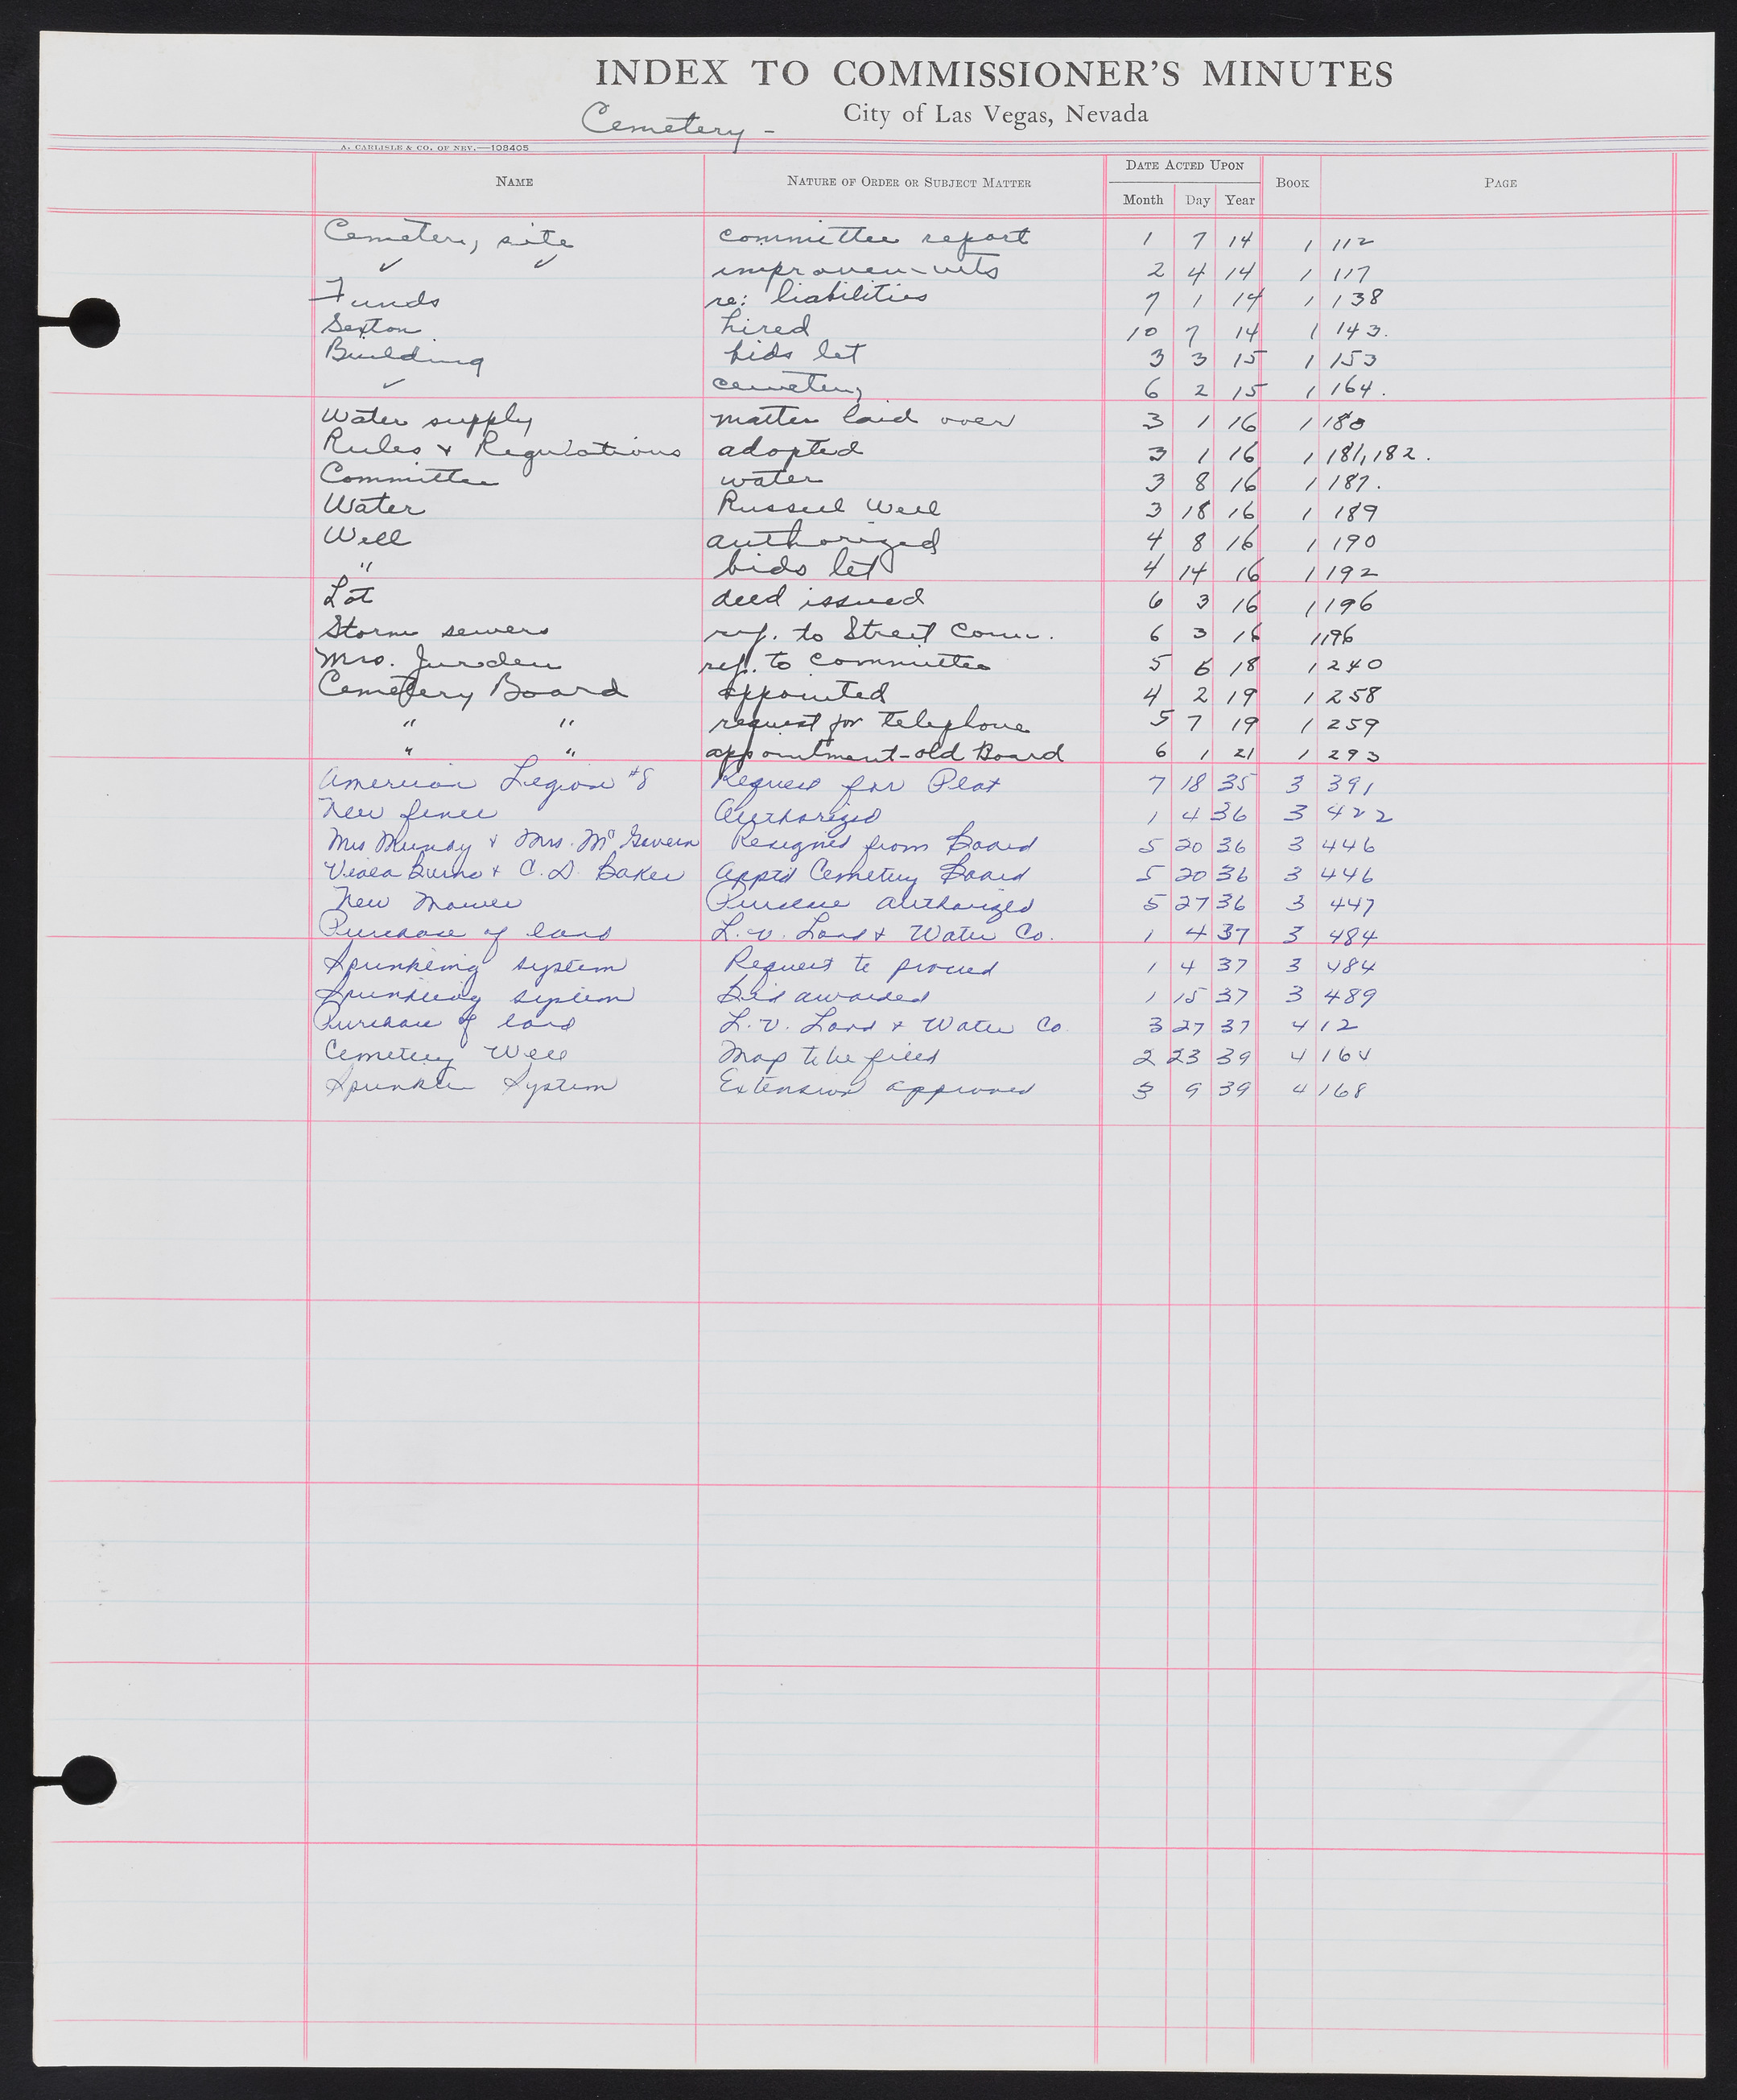 INDEX TO COMMISSIONER'S MINUTES
City of Las Vegas, Nevada
Cemetery -
A. CARLISLE & CO. OF NEV.—108405
NAME NATURE OF ORDER OR SUBJECT MATTER DATE ACTED UPON Month Day Year BOOK PAGE
Cemetery site committee report 1 7 14 1 112
✓ ✓ improvements 2 4 14 1 117
Funds re: liabilities 7 1 14 1 138
Sexton hired 10 7 14 1 143.
Building bids let 3 3 15 1 153
✓ cemetery 6 2 15 1 164.
Water supply matter laid over 3 1 16 1 180
Rules & Regulations adopted 3 1 16 1 181,182.
Committee water 3 8 16 1 187.
Water Russell Well 3 18 16 1 189
Well authorized 4 8 16 1 190
" bids let 4 14 16 1 192
Lot deed issued 6 3 16 1 196
Storm sewers ref. to Street Comm. 6 3 16 1 196
Mrs. ref. to committee 5 6 18 1 240
Cemetery Board appointed 4 2 19 1 258
" " request for telephone 5 7 19 1 259
" " appointment-old Board 6 1 21 1 293
American Legion #8 Request for Plat 7 18 35 3 391
New fence Authorized 1 4 36 3 422
Mrs Mundy & Mrs. McGovern Resigned from Board 5 20 36 3 446
Viola Burns & C. D. Baker Apptd Cemetery Board 5 20 36 3 446
New Mower Purchase authorized 5 27 36 3 447
Purchase of land L.V. Land & Water Co. 1 4 37 3 484
Sprinkling system Request to proceed 1 4 37 3 484
Sprinkling system Bid awarded 1 15 37 3 489
Purchase of land L.V. Land & Water Co. 3 27 37 4 12
Cemetery Well Map to be filed 2 23 39 4 164
Sprinkler System Extension approved 3 9 39 4 168